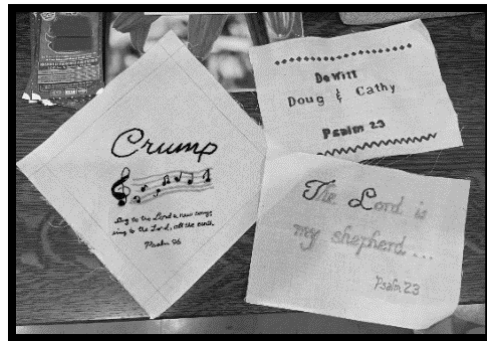 Crump
Sing to the Lord a new song;
sing to the Lord, all the earth.
Psalm 96
DeWitt
Doug & Cathy
Psalm 23
The Lord is
my shepherd...
Psalm 23